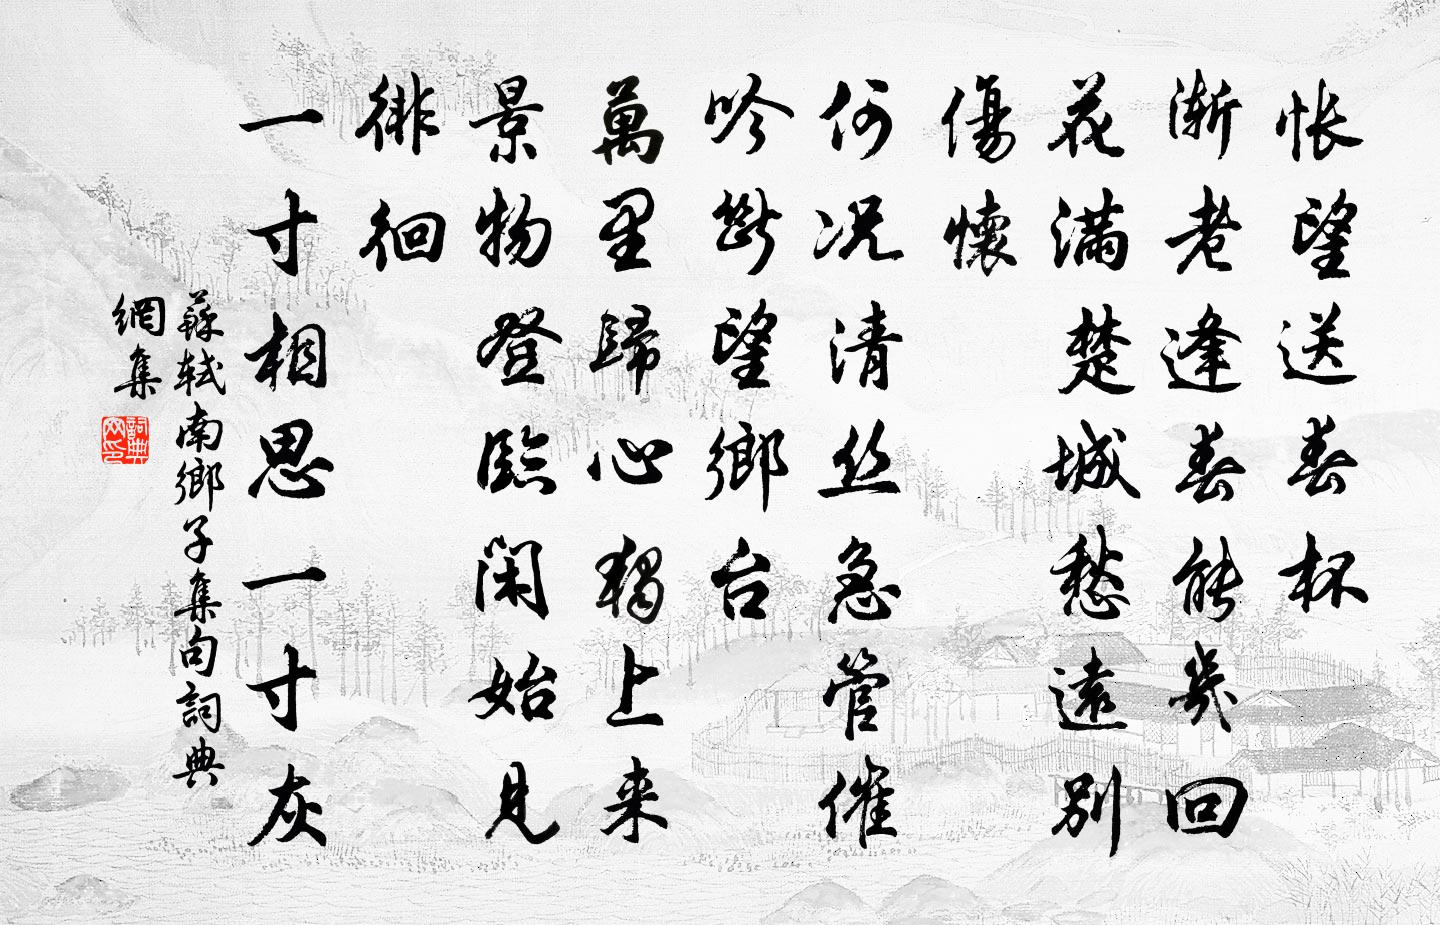 怅望送春杯
渐老逢春能幾回
花满楚城愁遠别
傷懷
何况清丝急管催
吟斷望鄉台
萬里歸心獨上来
景物登臨闲始见
徘徊
一寸相思一寸灰
蘇軾南鄉子集句詞典
網集
詞典
网印